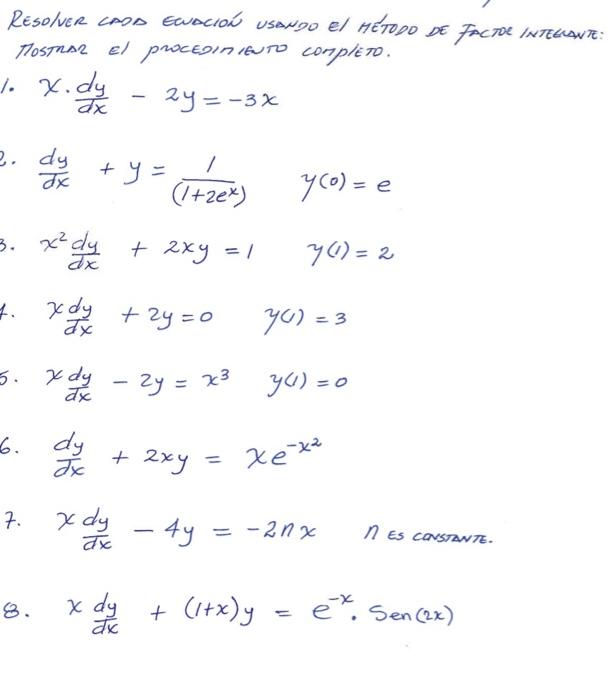 RESOLVER CADA ECUACIÓN USANDO El MÉTODO DE FACTOR INTEGRANTE:
MOSTRAR El PROCEDIMIENTO COMPLETO.
1. x·dy/dx - 2y = -3x
2. dy/dx + y = 1/(1+2eˣ) y(0) = e
3. x² dy/dx + 2xy = 1 y(1) = 2
4. x dy/dx + 2y = 0 y(1) = 3
5. x dy/dx - 2y = x³ y(1) = 0
6. dy/dx + 2xy = xe^-x²
7. x dy/dx - 4y = -2nx n ES CONSTANTE.
8. x dy/dx + (1+x)y = e^-x · Sen(2x)